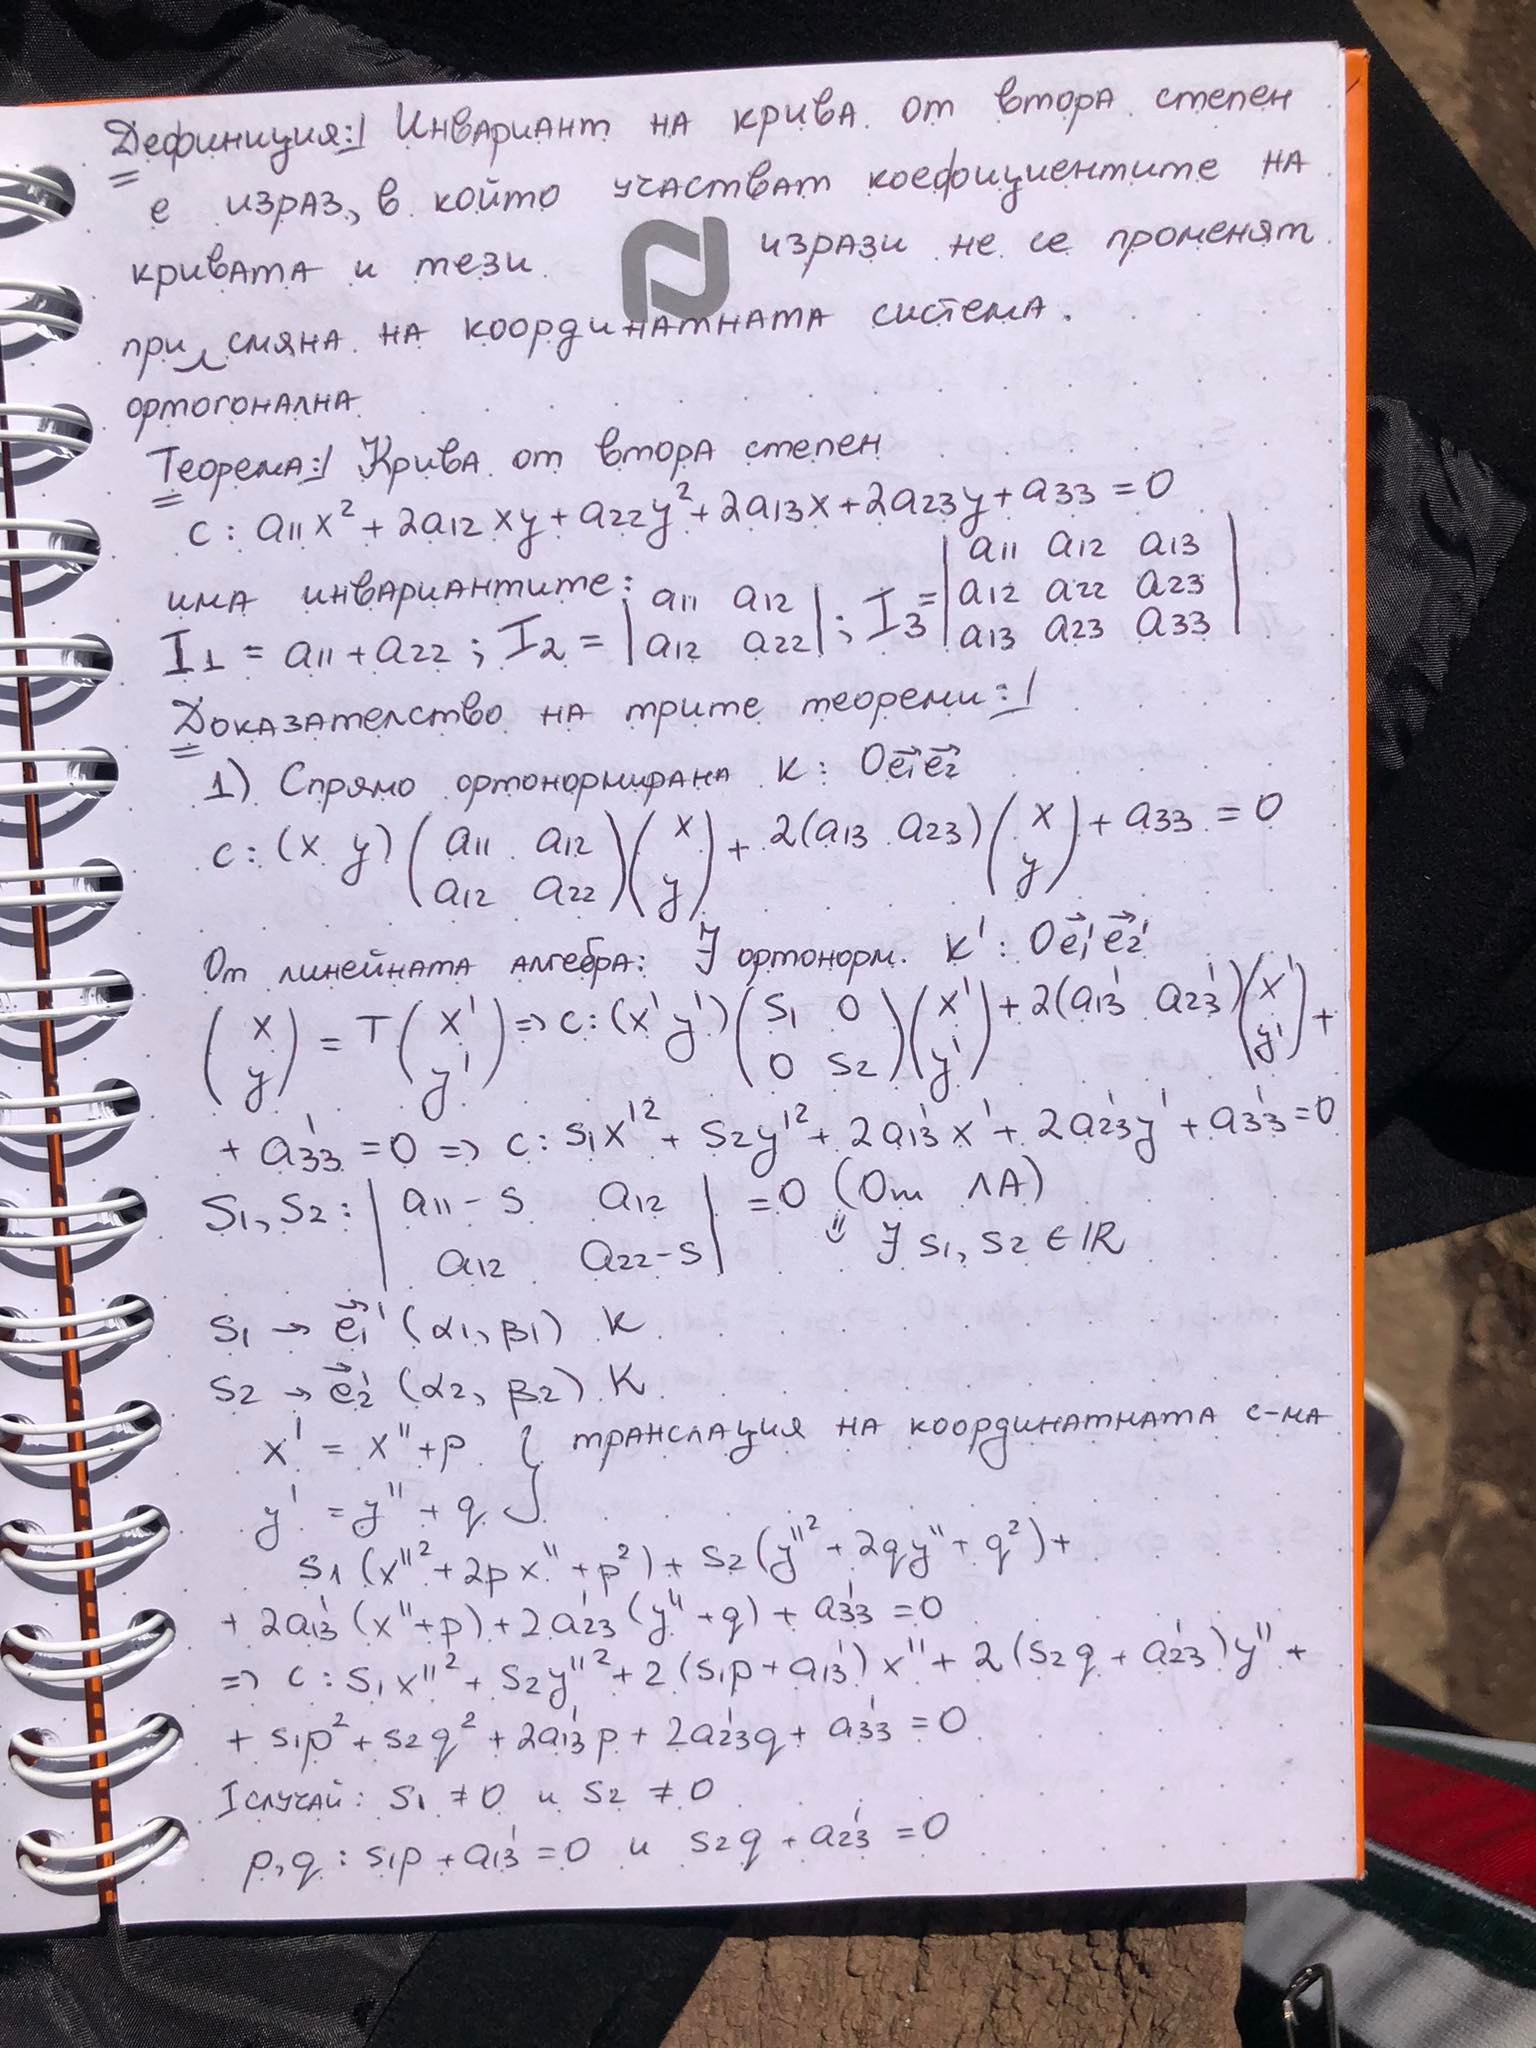 Дефиниция:| Инвариант на крива от втора степен
е израз, в който участват коефициентите на
кривата и тези изрази не се променят
при смяна на координатната система.
ортогонална
Теорема:| Крива от втора степен
c: a11x² + 2a12xy + a22y² + 2a13x + 2a23y + a33 = 0
има инвариантите:
I1 = a11 + a22 ; I2 = | a11 a12 | ; I3 = | a11 a12 a13 |
| a12 a22 | | a12 a22 a23 |
| a13 a23 a33 |
Доказателство на трите теореми:|
1) Спрямо ортонормирана K: Oe⃗1e⃗2
c: (x y) ( a11 a12 ) ( x ) + 2(a13 a23) ( x ) + a33 = 0
( a12 a22 ) ( y ) ( y )
От линейната алгебра: ∃ ортонорм. K': Oe⃗1'e⃗2'
( x ) = T ( x' ) => c: (x' y') ( s1 0 ) ( x' ) + 2(a13' a23') ( x' ) +
( y ) ( y' ) ( 0 s2 ) ( y' ) ( y' )
+ a33' = 0 => c: s1x'² + s2y'² + 2a13'x' + 2a23'y' + a33' = 0
s1, s2: | a11-s a12 | = 0 (От ЛА)
| a12 a22-s | ⇓ ∃ s1, s2 ∈ ℝ
s1 → e⃗1' (α1, β1) K
s2 → e⃗2' (α2, β2) K
x' = x'' + p } транслация на координатната с-ма
y' = y'' + q
s1 (x''² + 2px'' + p²) + s2 (y''² + 2qy'' + q²) +
+ 2a13' (x'' + p) + 2a23' (y'' + q) + a33' = 0
=> c: s1x''² + s2y''² + 2(s1p + a13')x'' + 2(s2q + a23')y'' +
+ s1p² + s2q² + 2a13'p + 2a23'q + a33' = 0
I случай: s1 ≠ 0 и s2 ≠ 0
p, q: s1p + a13' = 0 и s2q + a23' = 0